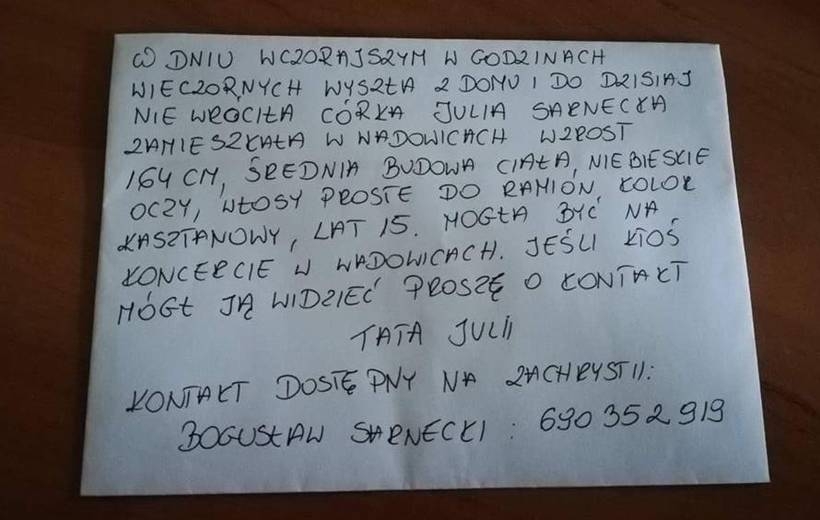 W DNIU WCZORAJSZYM W GODZINACH
WIECZORNYCH WYSZŁA Z DOMU I DO DZISIAJ
NIE WRÓCIŁA CÓRKA JULIA SARNECKA
ZAMIESZKAŁA W WADOWICACH WZROST
164 CM, ŚREDNIA BUDOWA CIAŁA, NIEBIESKIE
OCZY, WŁOSY PROSTE DO RAMION, KOLOR
KASZTANOWY, LAT 15. MOGŁA BYĆ NA
KONCERCIE W WADOWICACH. JEŚLI KTOŚ
MÓGŁ JĄ WIDZIEĆ PROSZĘ O KONTAKT
TATA JULII
KONTAKT DOSTĘPNY NA ZACHRYSTII:
BOGUSŁAW SARNECKI : 690 352 919